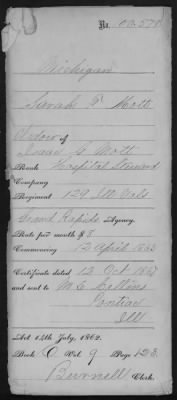 No.
Michigan
Sarah P. Mott
Widow of
Isaac S. Mott
Rank Hospital Steward
Company
Regiment 129 Ill Vols
Grand Rapids Agency.
Rate per month $8
Commencing 12 April 1863
Certificate dated 12 Oct 1863
and sent to M. E. Collins
Pontiac
Ill
Act 14th July, 1862.
Book C Vol. 9 Page 123.
Burnell Clerk.